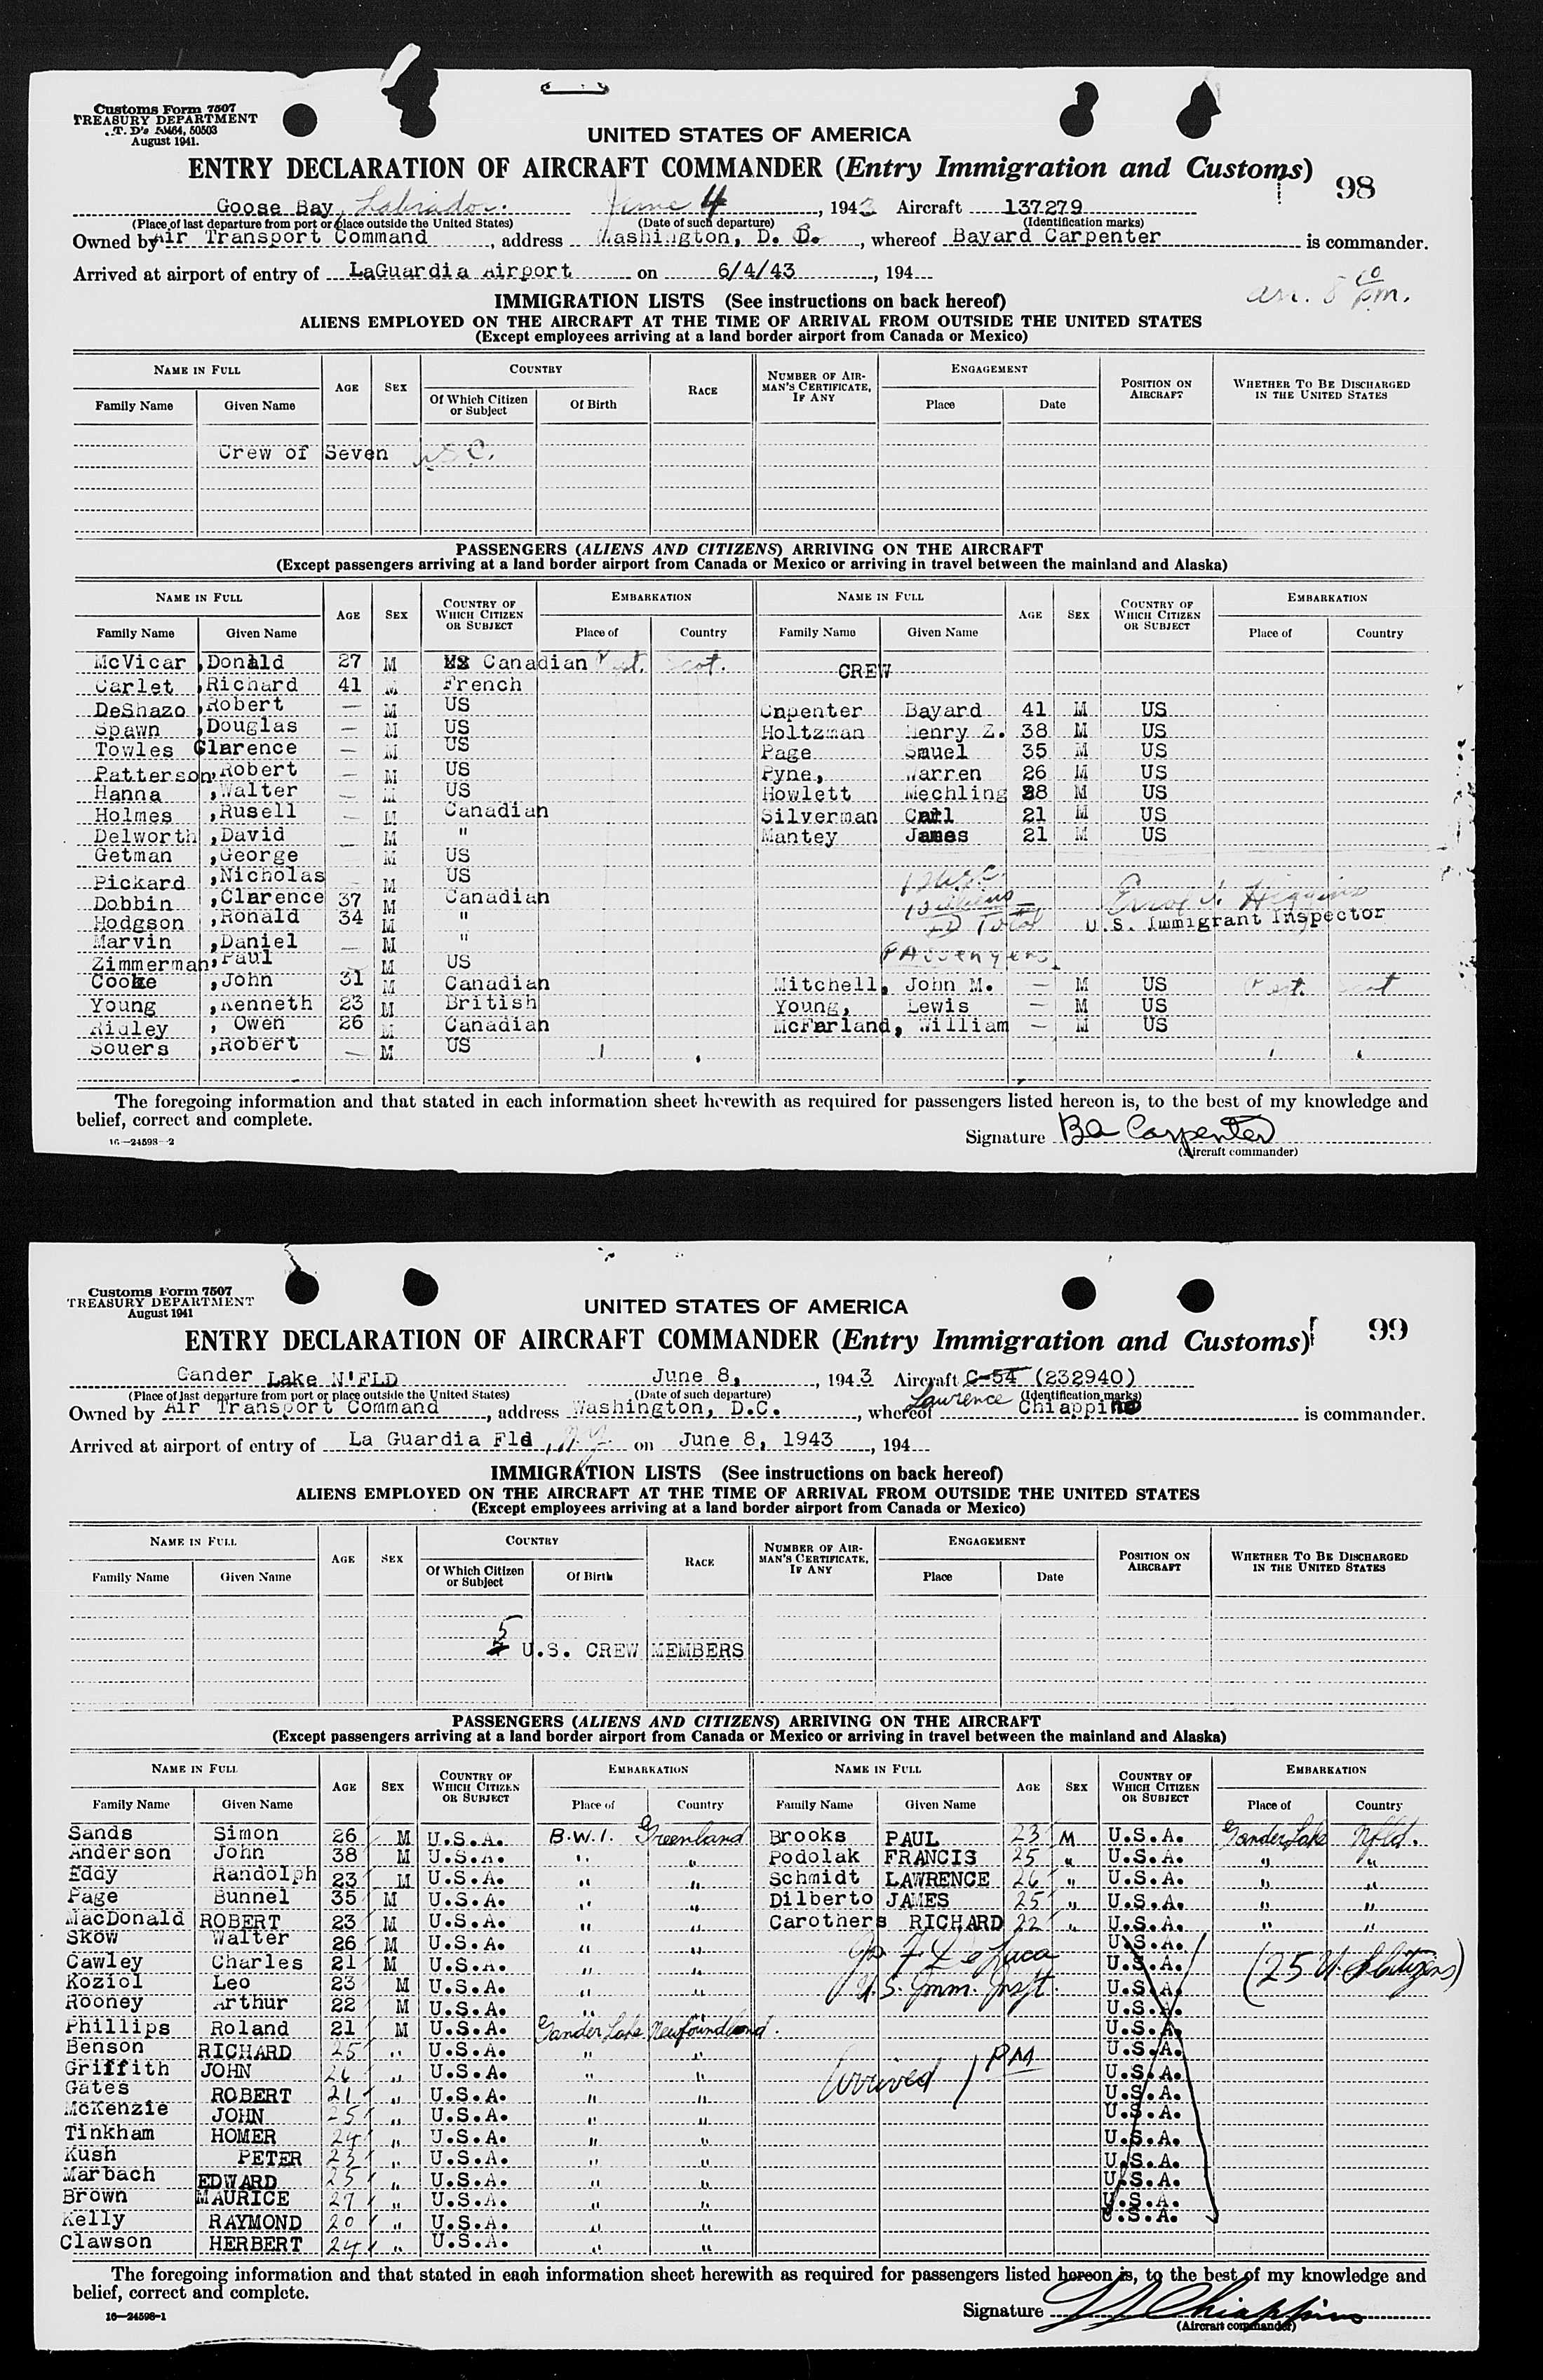 Customs Form 7507
TREASURY DEPARTMENT
T. D's 50464, 50503
August 1941.
UNITED STATES OF AMERICA
ENTRY DECLARATION OF AIRCRAFT COMMANDER (Entry Immigration and Customs)
98
Goose Bay, Labrador. June 4, 1943 Aircraft 137279
(Place of last departure from port or place outside the United States) (Date of such departure) (Identification marks)
Owned by Air Transport Command, address Washington, D. C., whereof Bayard Carpenter is commander.
Arrived at airport of entry of LaGuardia Airport on 6/4/43, 194
arr. 8 pm.
IMMIGRATION LISTS (See instructions on back hereof)
ALIENS EMPLOYED ON THE AIRCRAFT AT THE TIME OF ARRIVAL FROM OUTSIDE THE UNITED STATES
(Except employees arriving at a land border airport from Canada or Mexico)
NAME IN FULL AGE SEX COUNTRY RACE NUMBER OF AIRMAN'S CERTIFICATE, IF ANY ENGAGEMENT POSITION ON AIRCRAFT WHETHER TO BE DISCHARGED IN THE UNITED STATES
Family Name Given Name Of Which Citizen or Subject Of Birth Place Date
Crew of Seven USC.
PASSENGERS (ALIENS AND CITIZENS) ARRIVING ON THE AIRCRAFT
(Except passengers arriving at a land border airport from Canada or Mexico or arriving in travel between the mainland and Alaska)
NAME IN FULL AGE SEX COUNTRY OF WHICH CITIZEN OR SUBJECT EMBARKATION NAME IN FULL AGE SEX COUNTRY OF WHICH CITIZEN OR SUBJECT EMBARKATION
Family Name Given Name Place of Country Family Name Given Name Place of Country
McVicar ,Donald 27 M Canadian Prest. Scot. CREW
Carlet ,Richard 41 M French
DeShazo ,Robert — M US Cnpenter Bayard 41 M US
Spawn ,Douglas — M US Holtzman Henry Z. 38 M US
Towles Clarence — M US Page Smuel 35 M US
Patterson, Robert — M US Pyne, Warren 26 M US
Hanna ,Walter — M US Howlett Mechling 28 M US
Holmes ,Rusell — M Canadian Silverman Carl 21 M US
Delworth ,David — M " Mantey James 21 M US
Getman ,George M US
Pickard ,Nicholas — M US 12 USC
Dobbin ,Clarence 37 M Canadian 10 aliens Errol J. Higgins
Hodgson ,Ronald 34 M " Total U.S. Immigrant Inspector
Marvin ,Daniel — M "
Zimmerman, Paul — M US Passengers
Cooke ,John 31 M Canadian Mitchell, John M. — M US Prest. Scot
Young ,Kenneth 23 M British Young, Lewis — M US
Ridley , Owen 26 M Canadian McFarland, William — M US
Souers ,Robert — M US
The foregoing information and that stated in each information sheet herewith as required for passengers listed hereon is, to the best of my knowledge and
belief, correct and complete.
16—24598—2
Signature BA Carpenter
(Aircraft commander)
Customs Form 7507
TREASURY DEPARTMENT
August 1941
UNITED STATES OF AMERICA
ENTRY DECLARATION OF AIRCRAFT COMMANDER (Entry Immigration and Customs)
99
Gander Lake N'FLD June 8, 1943 Aircraft C-54 (232940)
(Place of last departure from port or place outside the United States) (Date of such departure) (Identification marks)
Owned by Air Transport Command, address Washington, D.C., whereof Lawrence Chiappino is commander.
Arrived at airport of entry of La Guardia Fld, N.Y. on June 8, 1943, 194
IMMIGRATION LISTS (See instructions on back hereof)
ALIENS EMPLOYED ON THE AIRCRAFT AT THE TIME OF ARRIVAL FROM OUTSIDE THE UNITED STATES
(Except employees arriving at a land border airport from Canada or Mexico)
NAME IN FULL AGE SEX COUNTRY RACE NUMBER OF AIRMAN'S CERTIFICATE, IF ANY ENGAGEMENT POSITION ON AIRCRAFT WHETHER TO BE DISCHARGED IN THE UNITED STATES
Family Name Given Name Of Which Citizen or Subject Of Birth Place Date
5 U.S. CREW MEMBERS
PASSENGERS (ALIENS AND CITIZENS) ARRIVING ON THE AIRCRAFT
(Except passengers arriving at a land border airport from Canada or Mexico or arriving in travel between the mainland and Alaska)
NAME IN FULL AGE SEX COUNTRY OF WHICH CITIZEN OR SUBJECT EMBARKATION NAME IN FULL AGE SEX COUNTRY OF WHICH CITIZEN OR SUBJECT EMBARKATION
Family Name Given Name Place of Country Family Name Given Name Place of Country
Sands Simon 26 M U.S.A. B.W.1. Greenland Brooks PAUL 23 M U.S.A. Gander Lake Nfld.
Anderson John 38 M U.S.A. " " Podolak FRANCIS 25 " U.S.A. " "
Eddy Randolph 23 M U.S.A. " " Schmidt LAWRENCE 26 " U.S.A. " "
Page Bunnel 35 M U.S.A. " " Dilberto JAMES 25 " U.S.A. " "
MacDonald ROBERT 23 M U.S.A. " " Carothers RICHARD 22 " U.S.A. " "
Skow Walter 26 M U.S.A. " " U.S.A.
Cawley Charles 21 M U.S.A. " " U.S.A. (25 U.S. Citizens)
Koziol Leo 23 M U.S.A. " " U.S. Imm. Inspt. U.S.A.
Rooney Arthur 22 M U.S.A. " " U.S.A.
Phillips Roland 21 M U.S.A. Gander Lake Newfoundland. U.S.A.
Benson RICHARD 25 " U.S.A. " " U.S.A.
Griffith JOHN 26 " U.S.A. " " Arrived 1 PM U.S.A.
Gates ROBERT 21 " U.S.A. " " U.S.A.
McKenzie JOHN 25 " U.S.A. " " U.S.A.
Tinkham HOMER 24 " U.S.A. " " U.S.A.
Kush PETER 23 " U.S.A. " " U.S.A.
Marbach EDWARD 25 " U.S.A. " " U.S.A.
Brown MAURICE 27 " U.S.A. " " U.S.A.
Kelly RAYMOND 20 " U.S.A. " " U.S.A.
Clawson HERBERT 24 " U.S.A. " "
The foregoing information and that stated in each information sheet herewith as required for passengers listed hereon is, to the best of my knowledge and
belief, correct and complete.
16—24598-1
Signature L J Chiappino
(Aircraft commander)